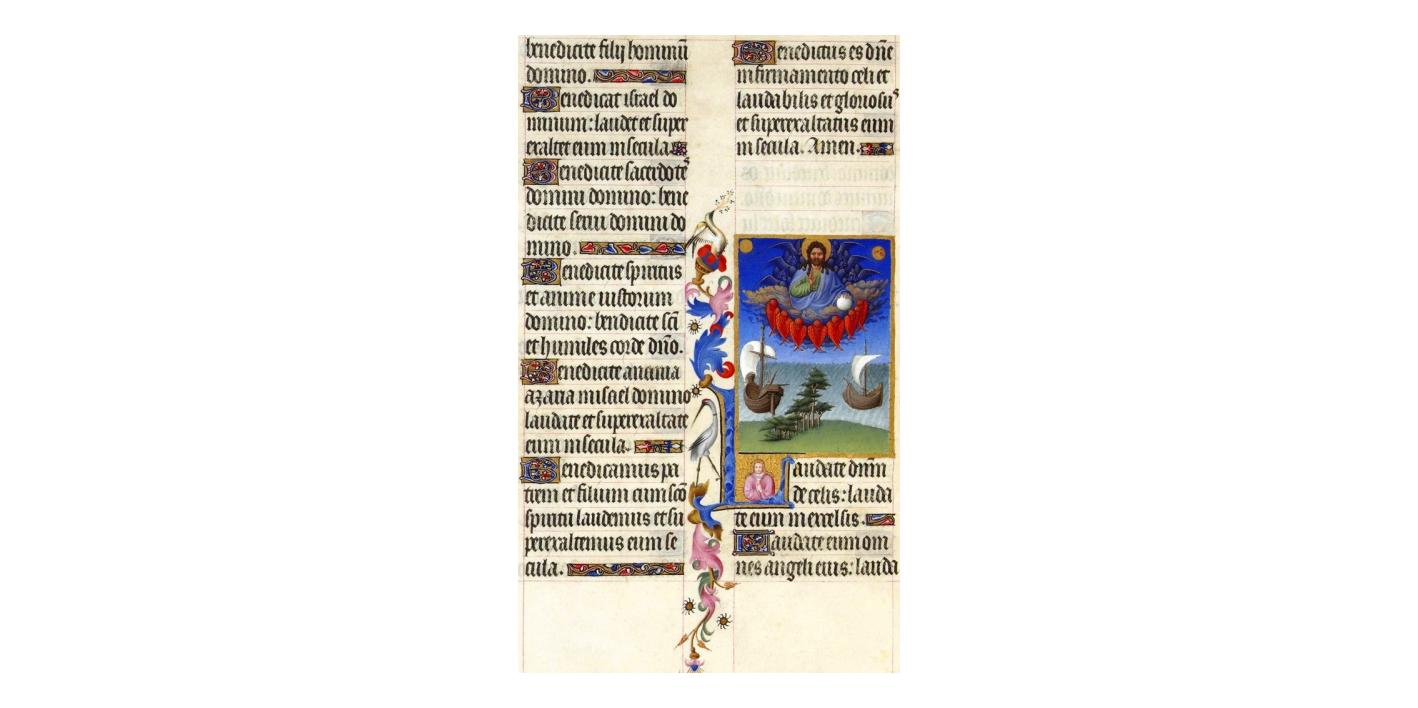 benedicite filij hominū
domino.
Benedicat israel do
minum: laudet et super
exaltet eum in secula.
Benedicite sacerdotes
domini domino: bene
dicite serui domini do
mino.
Benedicite spiritus
et anime iustorum
domino: bendicite scī
et humiles corde dño.
Benedicite anania
azaria misael domino
laudate et superexaltate
eum in secula.
Benedicamus pa
trem et filium cum scō
spiritu laudemus et su
perexaltemus eum se
cula.
Benedictus es dñe
in firmamento celi et
laudabilis et gloriosus
et superexaltatus eum
in secula. Amen.
Laudate dnm̄
de celis: lauda
te eum in excelsis.
Laudate eum om
nes angeli eius: lauda